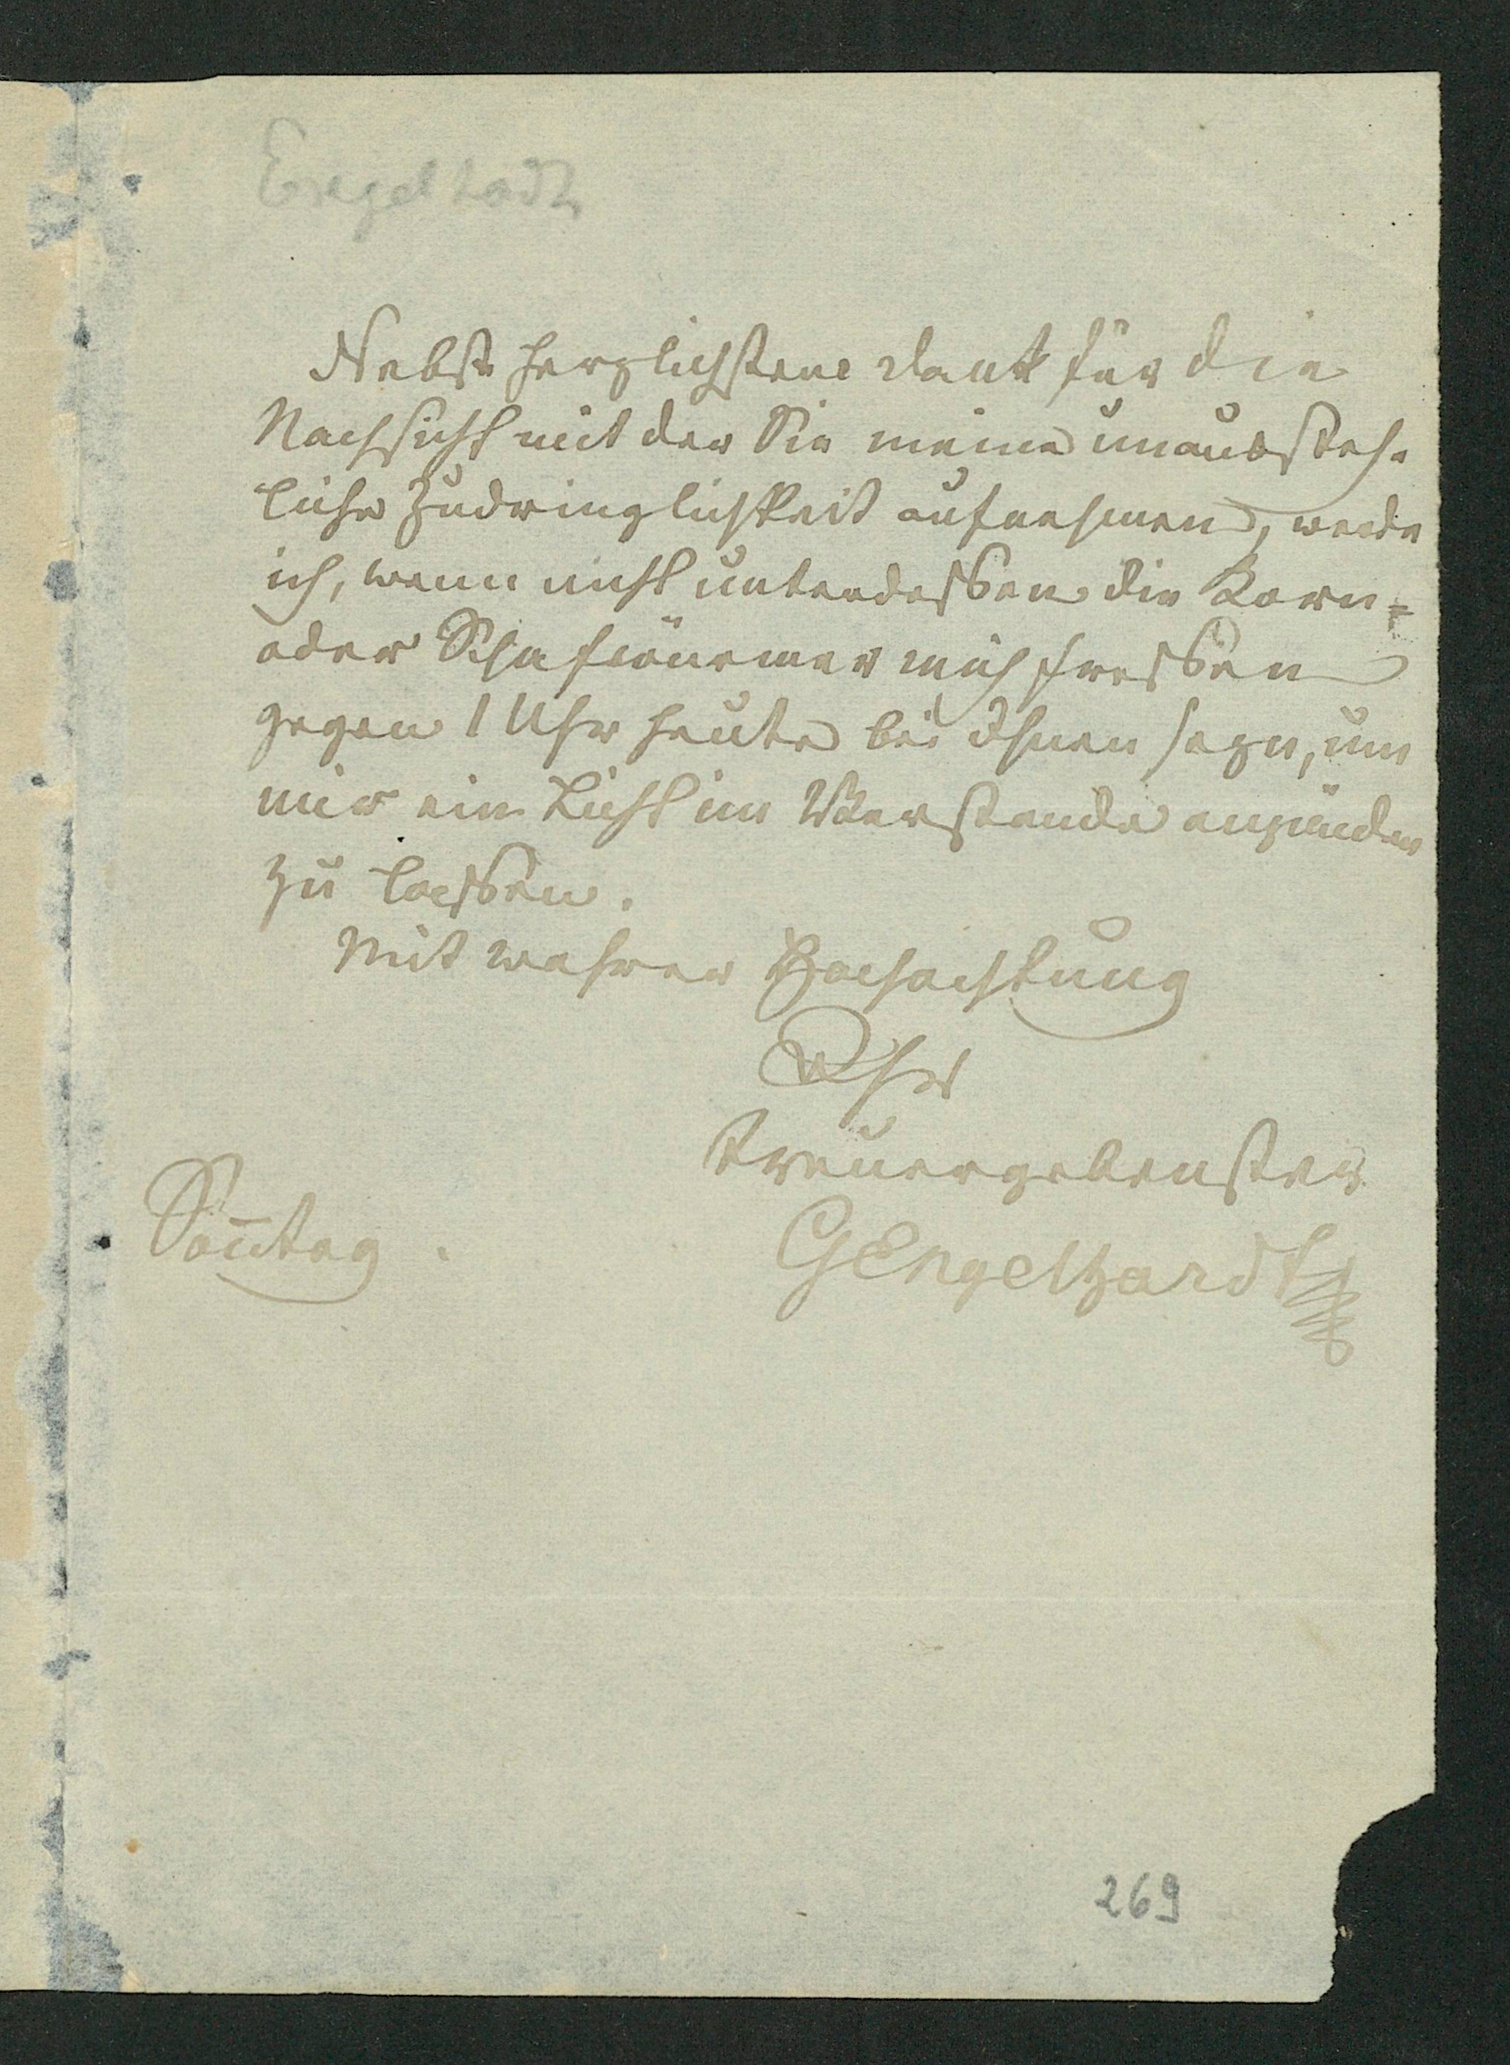 Engelhardt
Nebst herzlichstem Dank für die
Nachsicht mit der Sie meine unaussteh-
liche Zudringlichkeit aufnehmen, werde
ich, wenn nicht unterdessen die Korn=
oder Schafwürmer mich fressen
gegen 1 Uhr heute bei Ihnen seyn, um
mir ein Licht im Verstande anzünden
zu lassen.
Mit wahrer Hochachtung
Ihr
treuergebenster
Soñtag.
GEngelhardt
269